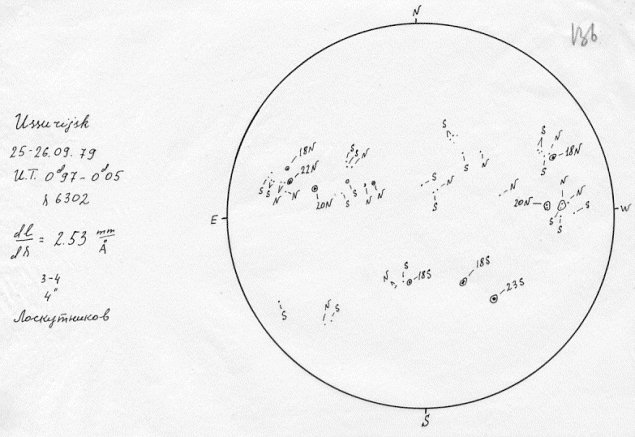 Ussurijsk
25-26.09.79
U.T. 0ᵈ97-0ᵈ05
λ 6302
dl/dλ = 2.53 mm/Å
3-4
4"
Лоскутников
N
E
W
S
18N
S S N
22N
S S V N N
20N
S S N N
S
S N
S N
S
N
S N
18N
S
20N
N N
S S S
N S 18S
18S
23S
S
N S